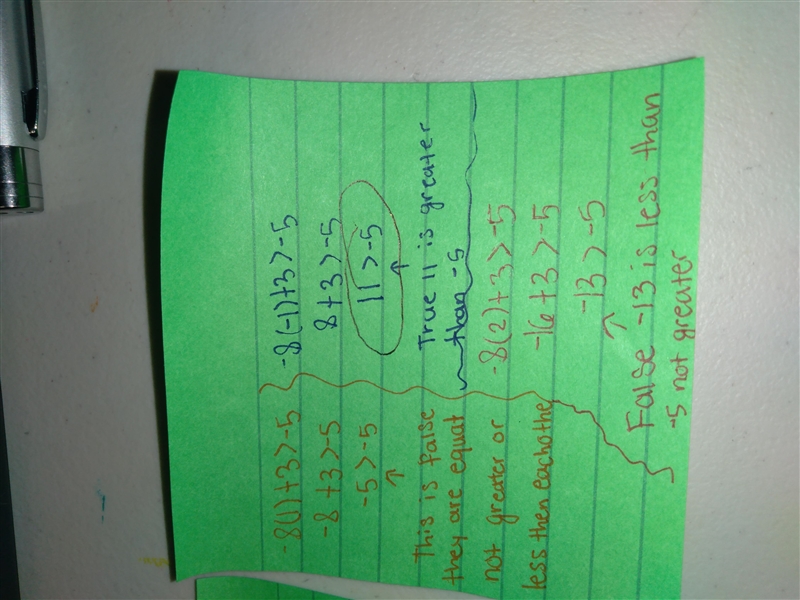 -8(1)+3>-5
-8+3>-5
-5>-5
↑
This is false
they are equal
not greater or
less then eachothe
-8(-1)+3>-5
8+3>-5
11>-5
↑
True 11 is greater
than -5
-8(2)+3>-5
-16+3>-5
-13>-5
↑
False -13 is less than
-5 not greater